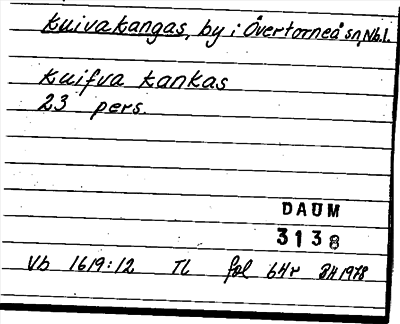 Kuivakangas, by i Övertorneå sn, Nb.l.
Kuifva Kankas
23 pers.
DAUM
3138
Vb 1619:12 TL fol 64r BH 1978